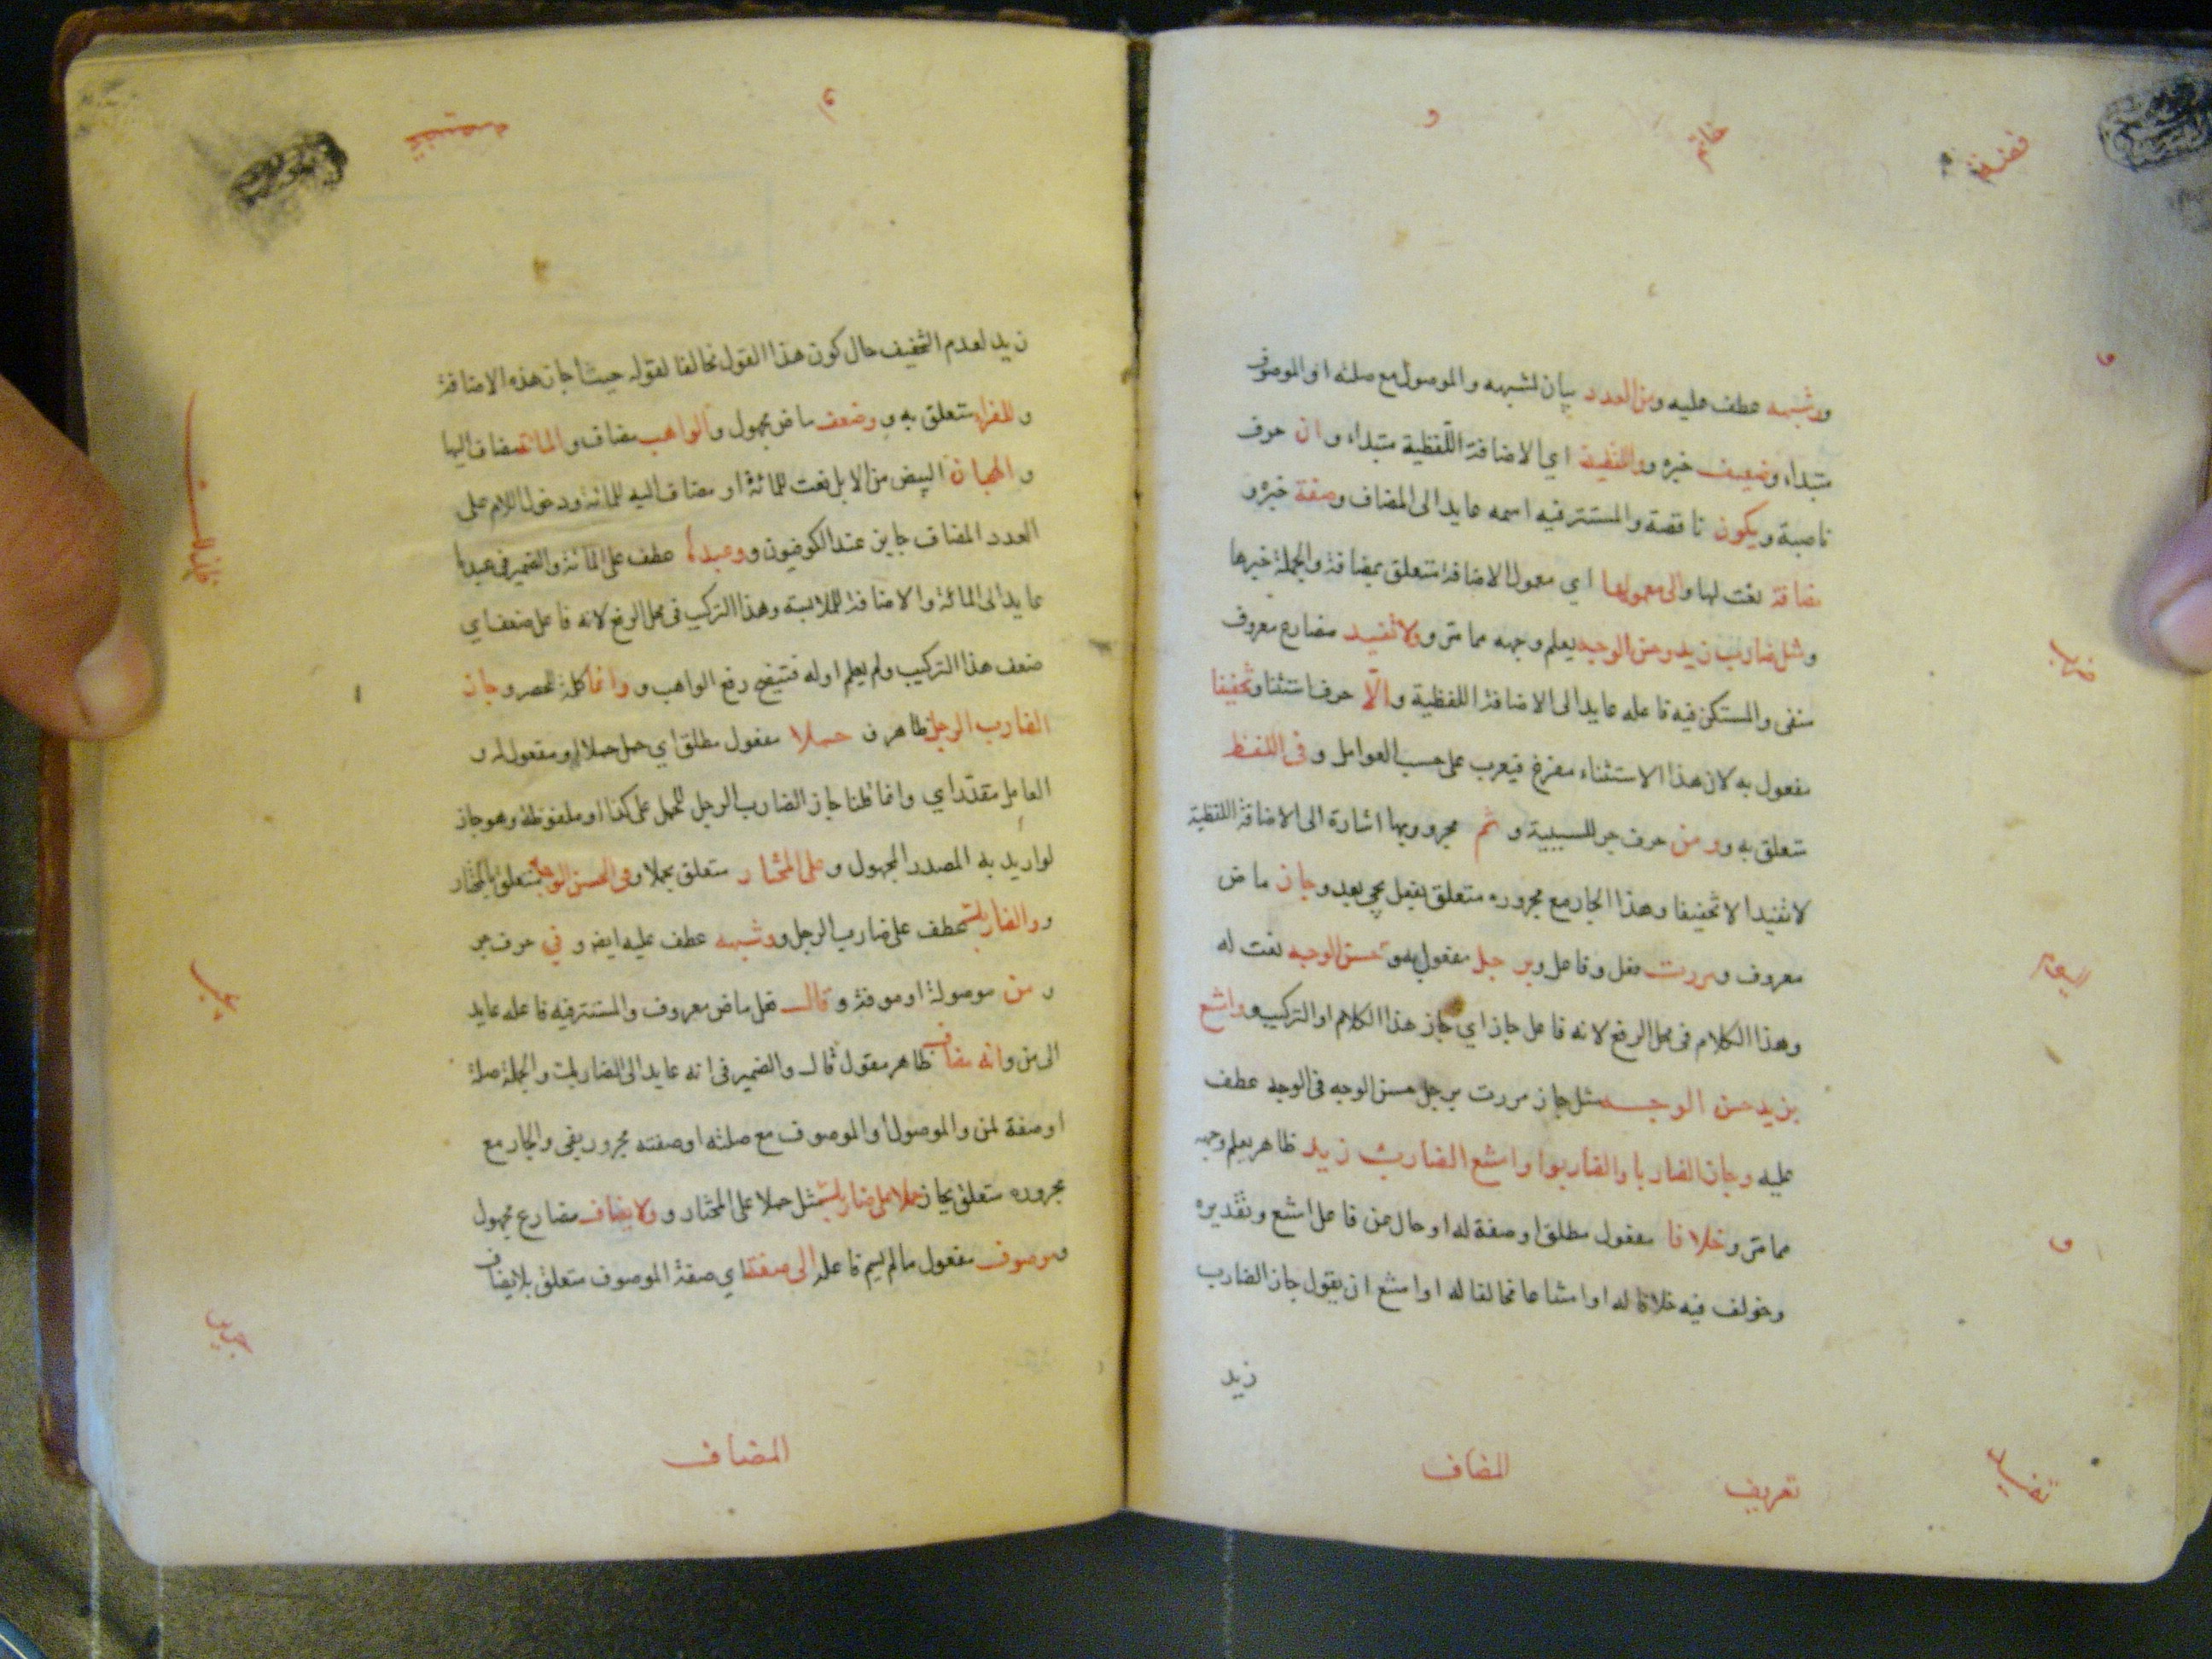 وشبهه عطف عليه ومن العدد بيان لشبهه والموصول مع صلته او الموصوف
مبتداء وضعيف خبره وواللفظية اي الاضافة اللفظية مبتداء وان حرف
ناصبة ويكون ناقصة والمستتر فيه اسمه عايد الى المضاف وصفة خبره و
مضافة نعت لها والى معمولها اي معمول الاضافة متعلق بمضافة والجملة خبرها
ومثل ضارب زيد وحسن الوجه يعلم وجهه مما مرّ وولا تفيد مضارع معروف
منفى والمستكن فيه فاعله عايد الى الاضافة اللفظية والّا حرف استثنا وتخفيفا
مفعول به لان هذا الاستثناء مفرغ فيعرب على حسب العوامل وفى اللفظ
متعلق به وومن حرف جر للسببية وثم مجرور بها اشارة الى الاضافة اللفظية
لا تفيد الا تخفيفا وهذا الجار مع مجروره متعلق بفعل يجي بعد وجاز ماض
معروف ومررت فعل وفاعل وبرجل مفعول به وحسن الوجه نعت له
وهذا الكلام فى محل الرفع لانه فاعل جاز اي جاز هذا الكلام او التركيب وامتنع
بزيد حسن الوجه مثل جاز مررت برجل حسن الوجه فى الوجه عطف
عليه وجاز الضاربا والضاربوا وامتنع الضارب زيد ظاهر يعلم وجهه
مما مرّ وخلافا مفعول مطلق او صفة له او حال من فاعل امتنع وتقديره
وخولف فيه خلافا له او امتناعا مخالفا له او امتنع ان يقول جاز الضارب
زيد
المضاف
تعريف
زيد لعدم التخفيف حال كون هذا القول مخالفا لقوله حيث اجاز هذه الاضافة
وللفراء متعلق به ووضعف ماض مجهول والواهب مضاف والمائة مضاف اليها
والهجان البيض من الابل نعت للمائة او مضاف اليه للمائة ودخول اللام على
العدد المضاف جايز عند الكوفيون ووعبدها عطف على المائة والضمير فى عبدها
عايد الى المائة والاضافة للملابسة وهذا التركيب فى محل الرفع لانه فاعل ضعف اي
ضعف هذا التركيب ولم يعلم اوله فتيضح رفع الواهب ووانما كلمة للحصر وجاز
الضارب الرجل ظاهر وحملا مفعول مطلق اي حمل حملا او مفعول له و
العامل مقدّر اي وانما قلنا جاز الضارب الرجل للحمل على كذا او ملفوظة وهو جاز
لو اريد به المصدر المجهول وعلى المختار متعلق بحملا وفى الحسن الوجه متعلق بالمختار
ووالضاربك عطف على ضارب الرجل ووشبهه عطف عليه ايضا وفي حرف جر
ومن موصولة او موصوفة وقال فعل ماض معروف والمستتر فيه فاعله عايد
الى من وانه مضاف ظاهر مقول قال والضمير فى انه عايد الى الضاربك والجملة صلة
او صفة لمن والموصول او الموصوف مع صلته او صفته مجرور بفى والجار مع
مجروره متعلق بجاز حملا على ضاربك مثل حملا على المختار وولا يضاف مضارع مجهول
وموصوف مفعول ما لم يسم فاعله الى صفته اي صفة الموصوف متعلق بلا يضاف
المضاف